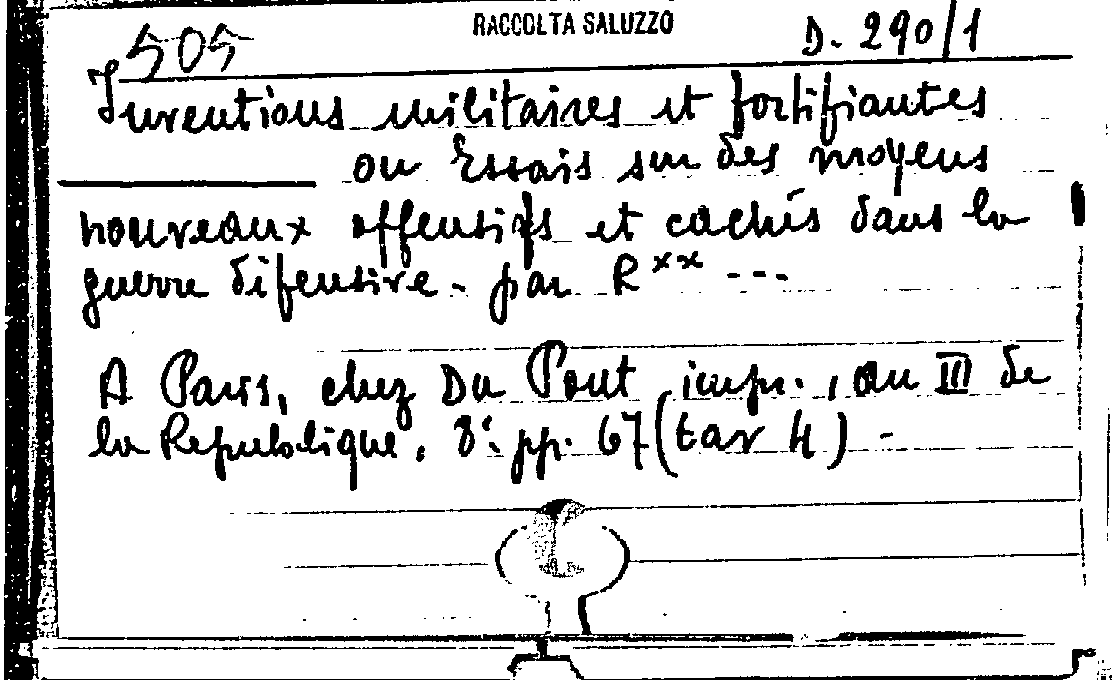 RACCOLTA SALUZZO
505 D. 290/1
Inventions militaires et fortifiantes
ou Essais sur des moyens
nouveaux offensifs et cachés dans la
guerre difensive - par R×× ---
A Paris, chez Du Pont impr., an III de
la Republique, 8° pp. 67 (tav 4) -